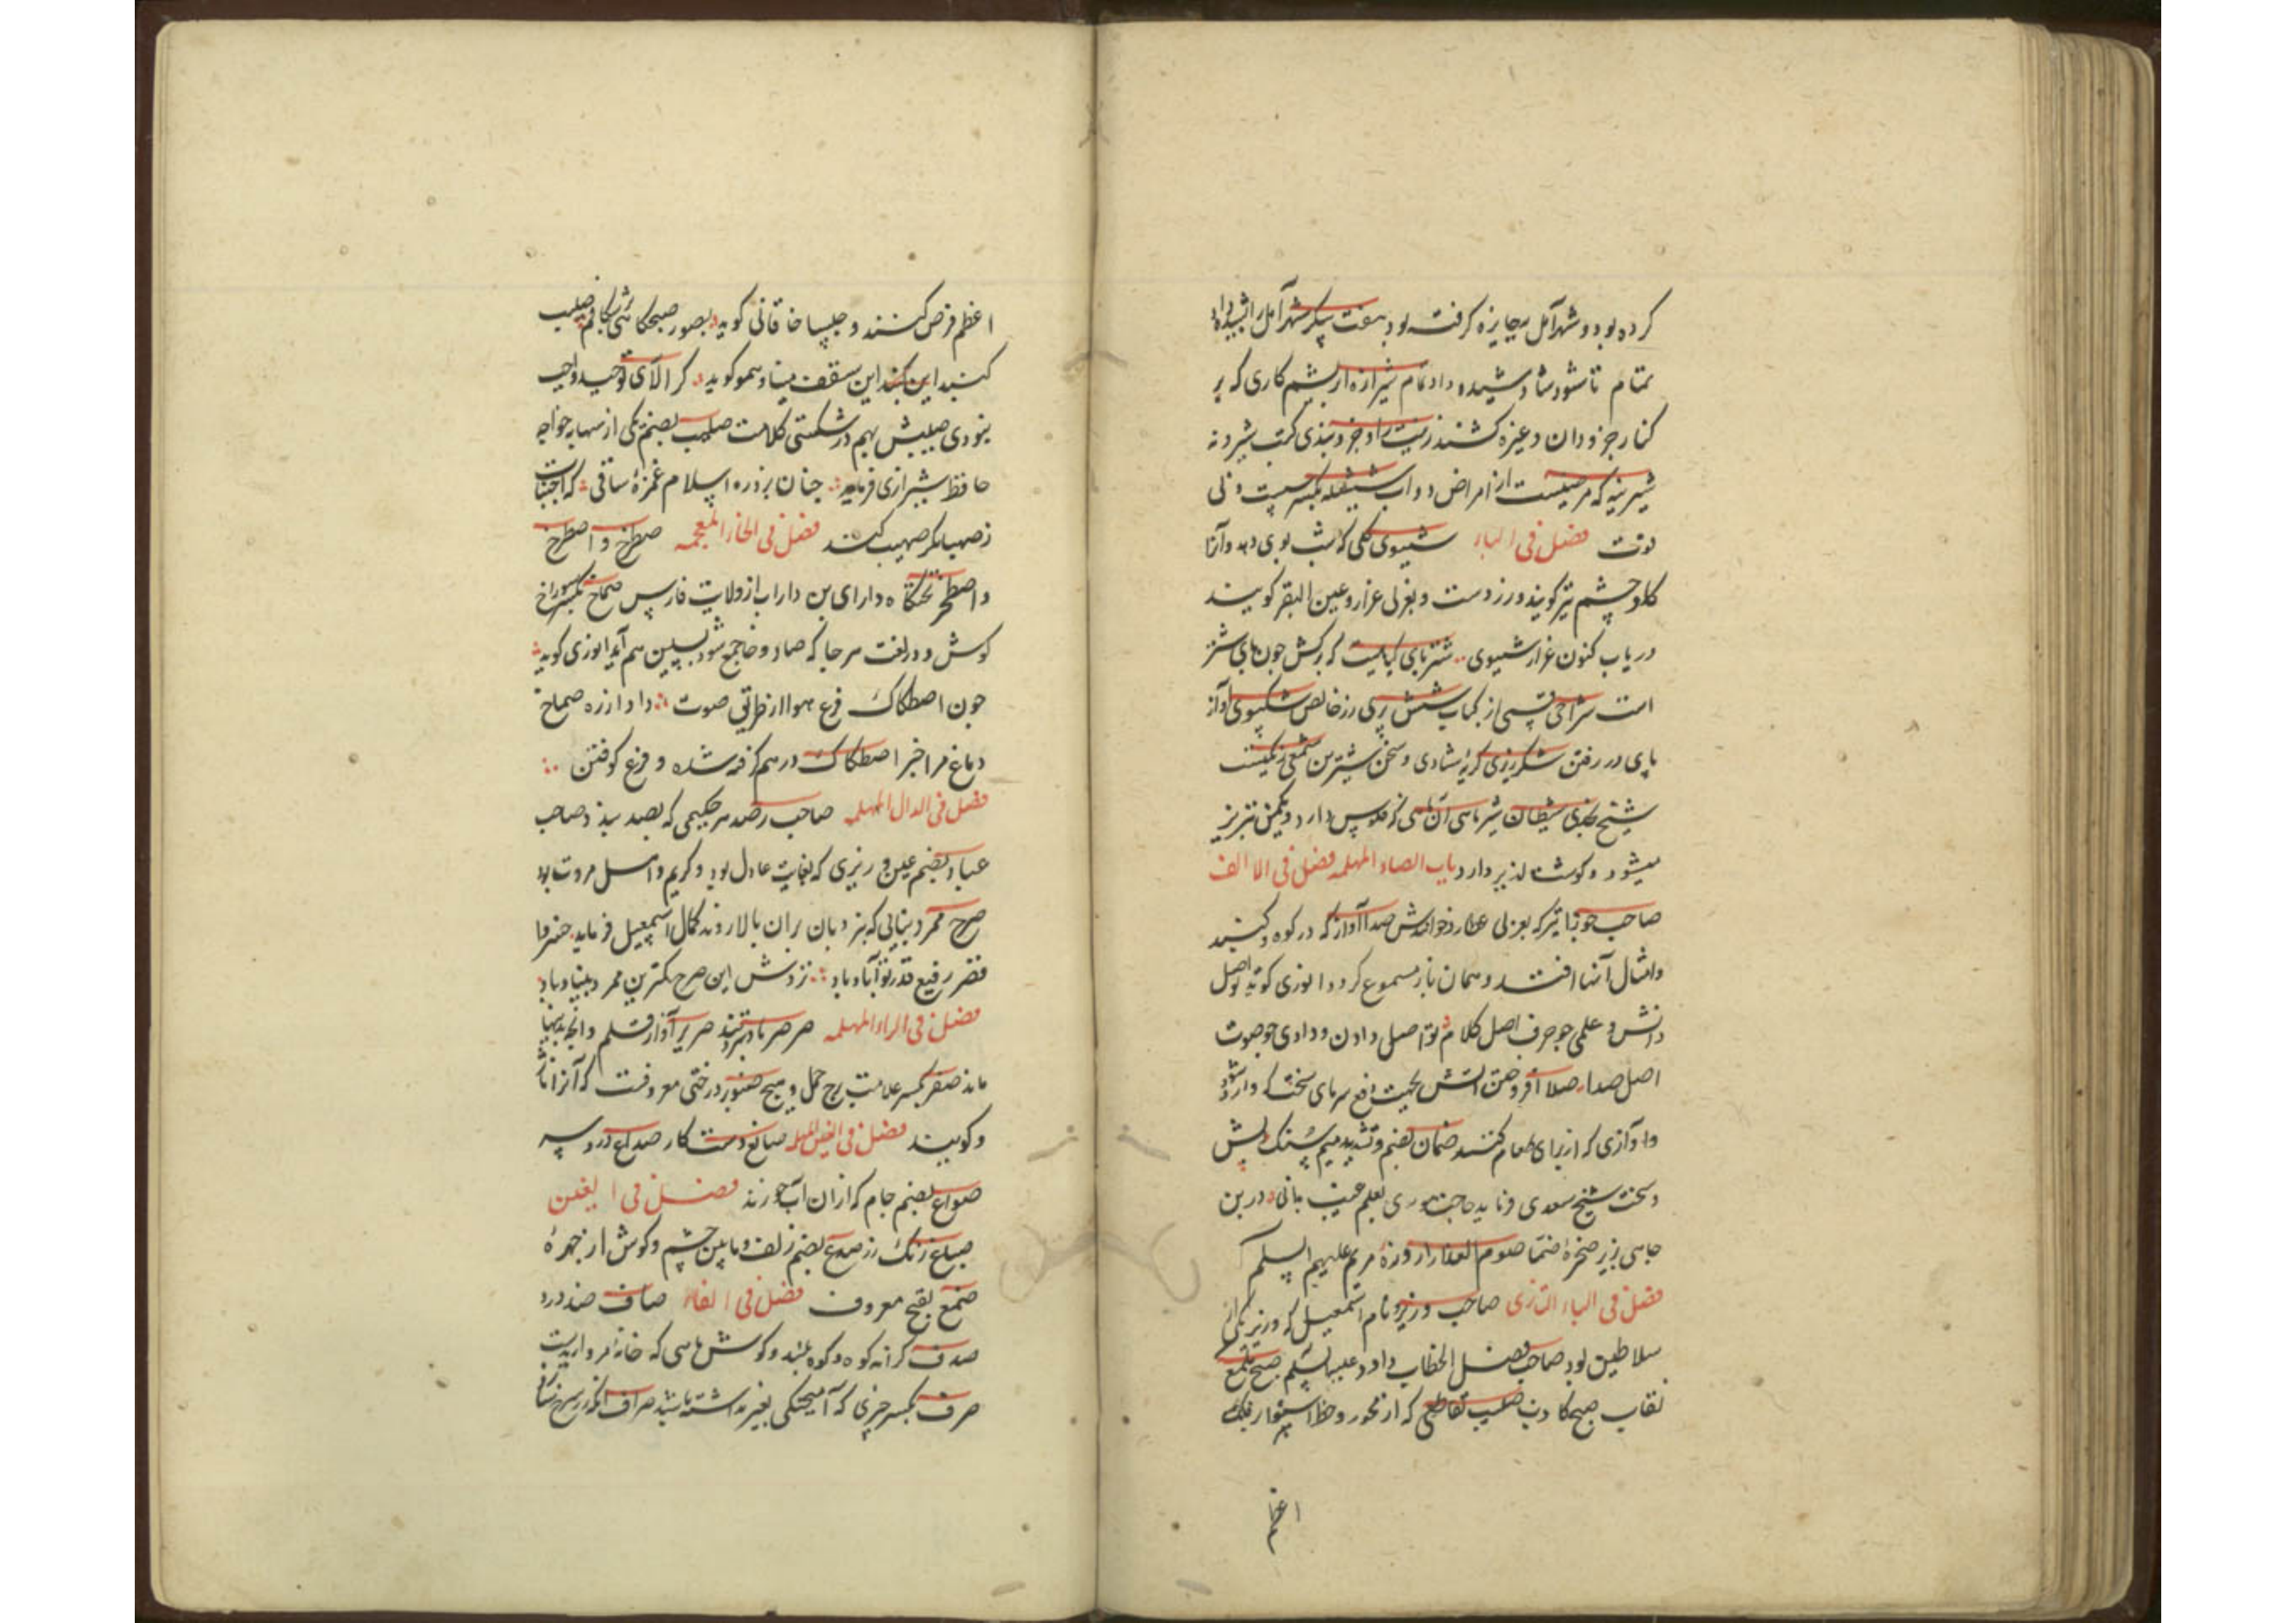 کرده بود و شهر آمل بجایزه گرفته بود بیت پیکر شهر آمل را
تمام تا شود شاد شیده داد تمام شیرازه ابریشم کاری که بر
کنار جزودان و غیره کشند زینت را و جزو بندی کتب شیرونه
شیرینه که مرضیست از امراض دواب
فصل فی الیاء شببوی گلی که شب بوی دهد و آنرا
گاوچشم نیز گویند و رز دوست و بعربی عرار و عین البقر گویند
دریاب کنون عرار شببوی شترپای گیاهیست که برگش چون پای شتر
است شراحی قسمی از کباب شش سری زر خالص شکپوی آواز
پای در رفتن شکرریزی گریه شادی و سخن شیرین شمعی رنگیست
شیخ نجدی شیطان شیرماهی آن ماهی که فلوس دارد
میشود و گوشت لذیذ دارد باب الصاد المهمله فصل فی الالف
صاحب جوزا تیر که بعربی عطارد خوانندش صدا آواز که در کوه و گنبد
و امثال آنها افتد و همان باز مسموع گردد انوری گوید اصل
دانش و علمی چو حرف اصل کلام تو اصلی دادن و دادی چو صوت
اصل صدا صلا افروختن آتش بجهت دفع سرمای سخت که وارد شود
و آوازی که از برای طعام کنند صمان بضم و تشدید میم سنگ
و سخت شیخ سعدی فرماید حاجت موری بعلم غیب بدانی در بن
چاهی بزیر صخره صما صوم العذرا روزه مریم علیهم السلم
فصل فی الباء التازی صاحب وزیر و نام اسمعیل که وزیر یکی از
سلاطین بود صاحب فصل الخطاب داود علیه السلم صبح ملمع
نقاب صبح کاذب صلیب تقاطعی که از محور و خط استوار فلک
اعظم
اعظم فرض کنند و چلیپا خاقانی گوید بصور صبحگاهی بشکافم صلیب
گنبد این سقف مینا و همو گوید گر الای توحید واجب
بخودی صلیبش بهم در شکستی کلامت صهیب بضم یکی از صحابه خواجه
حافظ شیرازی فرماید چنان بزد ره اسلام غمزه ساقی که اجتناب
ز صهبا مگر صهیب کند فصل فی الخاء المعجمه صطرخ و اصطرخ
و اصطخر تختگاه دارای بن داراب از ولایت فارس صماخ بکسر سوراخ
گوش و در لغت هر جا که صاد و خا جمع شود بسین هم آید انوری گوید
چون اصطکاک قرع هوا از طریق صوت داد از ره صماخ
دماغ مرا خبر اصطکاک درهم کوفته شده و قرع کوفتن
فصل فی الدال المهمله صاحب رصد هر حکیمی که رصد بندد صاحب
عباد بضم عین وزیری که بغایت عادل بود و کریم و اهل مروت بود
صرح ممرد بنایی که بنردبان بران بالا روند کمال اسمعیل فرماید خسروا
قصر رفیع قدر تو آباد باد نزدش این صرح ممرد بی بنیاد باد
فصل فی الراء المهمله صرصر باد تند صریر آواز قلم و آنچه بدینها
ماند صفر بکسر علامت برج حمل و هیچ صنوبر درختی معروفست که آنرا ناژ
و گویند فصل فی العین المهمله صانع دستکار صداع درد سر
صواع بضم جام که ازان آب خورند فصل فی الغین
صباغ رنگ رز صدغ بضم زلف و مابین چشم و گوش از چهره
صمغ بفتح معروف فصل فی الفاء صاف ضد درد
صدف کرانه کوه و کوه بلند و گوش ماهی که خانه مرواریدست
صرف بکسر چیزی که آمیختگی بغیر نداشته باشد صراف آنکه زر سرخ شناس